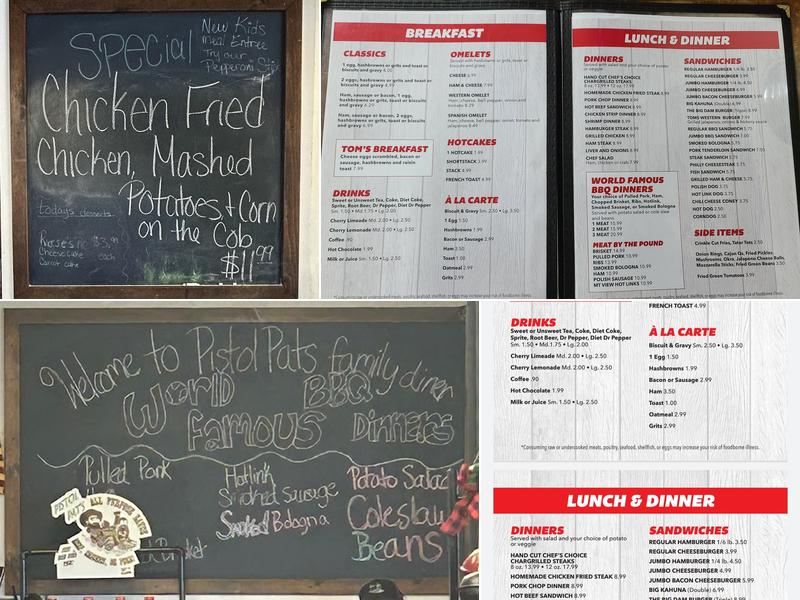 Special
New Kids
Meal Entree
Try our
Pepperoni
Chicken Fried
Chicken, Mashed
Potatoes + Corn
on the Cob
$11.99
todays desserts
each
Carrot cake
BREAKFAST
CLASSICS
1 egg, hashbrowns or grits and toast or
biscuits and gravy 4.00
2 eggs, hashbrowns or grits and toast or
biscuits and gravy 4.99
Ham, sausage or bacon, 1 egg,
hashbrowns or grits, toast or biscuits
and gravy 6.29
Ham, sausage or bacon, 2 eggs,
hashbrowns or grits, toast or biscuits
and gravy 6.99
TOM'S BREAKFAST
Cheese eggs scrambled, bacon or
sausage, hashbrowns and
toast 7.99
DRINKS
Sweet or Unsweet Tea, Coke, Diet Coke,
Sprite, Root Beer, Dr Pepper, Diet Dr Pepper
Sm. 1.50 • Md.1.75 • Lg. 2.00
Cherry Limeade Md. 2.00 • Lg. 2.50
Cherry Lemonade Md. 2.00 • Lg. 2.50
Coffee .90
Hot Chocolate 1.99
Milk or Juice Sm. 1.50 • Lg. 2.50
OMELETS
Served with hashbrowns or grits, toast or
biscuits and gravy
CHEESE 6.99
HAM & CHEESE 7.99
WESTERN OMELET
Ham, cheese, bell pepper, onion and
tomato 8.29
SPANISH OMELET
Ham, cheese, bell pepper, onion, tomato and
jalapenos 8.49
HOTCAKES
1 HOTCAKE 1.99
SHORTSTACK 3.99
STACK 4.99
FRENCH TOAST 4.99
À LA CARTE
Biscuit & Gravy Sm. 2.50 • Lg. 3.50
1 Egg 1.50
Hashbrowns 1.99
Bacon or Sausage 2.99
Ham 3.50
Toast 1.00
Oatmeal 2.99
Grits 2.99
LUNCH & DINNER
DINNERS
Served with salad and your choice of potato
or veggie
HAND CUT CHEF'S CHOICE
CHARGRILLED STEAKS
8 oz. 13.99 • 12 oz. 17.99
HOMEMADE CHICKEN FRIED STEAK 8.99
PORK CHOP DINNER 8.99
HOT BEEF SANDWICH 8.99
CHICKEN STRIP DINNER 8.99
SHRIMP DINNER 8.99
HAMBURGER STEAK 8.99
GRILLED CHICKEN 8.99
HAM STEAK 8.99
LIVER AND ONIONS 8.99
CHEF SALAD
Ham, chicken or crab 7.99
WORLD FAMOUS
BBQ DINNERS
Your choice of Pulled Pork, Ham,
Chopped Brisket, Ribs, Hotlink,
Smoked Sausage, or Smoked Bologna
Served with potato salad or cole slaw
and beans
1 MEAT 10.99
2 MEAT 15.99
3 MEAT 20.99
MEAT BY THE POUND
BRISKET 14.99
PULLED PORK 10.99
RIBS 13.99
SMOKED BOLOGNA 10.99
HAM 10.99
POLISH SAUSAGE 10.99
MT VIEW HOT LINKS 10.99
SANDWICHES
REGULAR HAMBURGER 1/6 lb. 3.50
REGULAR CHEESEBURGER 3.99
JUMBO HAMBURGER 1/4 lb. 4.50
JUMBO CHEESEBURGER 4.99
JUMBO BACON CHEESEBURGER 5.99
BIG KAHUNA (Double) 6.99
THE BIG DAM BURGER (Triple) 8.99
TOMS WESTERN BURGER 7.99
Grilled jalapenos, onions & hickory sauce
REGULAR BBQ SANDWICH 5.75
JUMBO BBQ SANDWICH 7.50
SMOKED BOLOGNA 5.75
PORK TENDERLOIN SANDWICH 7.00
STEAK SANDWICH 5.75
PHILLY CHEESESTEAK 5.75
FISH SANDWICH 5.75
GRILLED HAM & CHEESE 5.75
POLISH DOG 3.75
HOT LINK DOG 3.75
CHILI CHEESE CONEY 3.75
HOT DOG 2.50
CORNDOG 2.50
SIDE ITEMS
Crinkle Cut Fries, Tater Tots 2.50
Onion Rings, Cajun Qs, Fried Pickles,
Mushrooms, Okra, Jalapeno Cheese Balls,
Mozzarella Sticks, Fried Green Beans 3.50
Fried Green Tomatoes 3.99
Welcome to Pistol Pats family diner
World
Famous
BBQ
Dinners
Pulled Pork
Hotlink
Smoked Sausage
Smoked Bologna
Potato Salad
Coleslaw
Beans
FRENCH TOAST 4.99
DRINKS
Sweet or Unsweet Tea, Coke, Diet Coke,
Sprite, Root Beer, Dr Pepper, Diet Dr Pepper
Sm. 1.50 • Md.1.75 • Lg. 2.00
Cherry Limeade Md. 2.00 • Lg. 2.50
Cherry Lemonade Md. 2.00 • Lg. 2.50
Coffee .90
Hot Chocolate 1.99
Milk or Juice Sm. 1.50 • Lg. 2.50
À LA CARTE
Biscuit & Gravy Sm. 2.50 • Lg. 3.50
1 Egg 1.50
Hashbrowns 1.99
Bacon or Sausage 2.99
Ham 3.50
Toast 1.00
Oatmeal 2.99
Grits 2.99
*Consuming raw or undercooked meats, poultry, seafood, shellfish, or eggs may increase your risk of foodborne illness.
LUNCH & DINNER
DINNERS
Served with salad and your choice of potato
or veggie
HAND CUT CHEF'S CHOICE
CHARGRILLED STEAKS
8 oz. 13.99 • 12 oz. 17.99
HOMEMADE CHICKEN FRIED STEAK 8.99
PORK CHOP DINNER 8.99
HOT BEEF SANDWICH 8.99
SANDWICHES
REGULAR HAMBURGER 1/6 lb. 3.50
REGULAR CHEESEBURGER 3.99
JUMBO HAMBURGER 1/4 lb. 4.50
JUMBO CHEESEBURGER 4.99
JUMBO BACON CHEESEBURGER 5.99
BIG KAHUNA (Double) 6.99
THE BIG DAM BURGER (Triple) 8.99